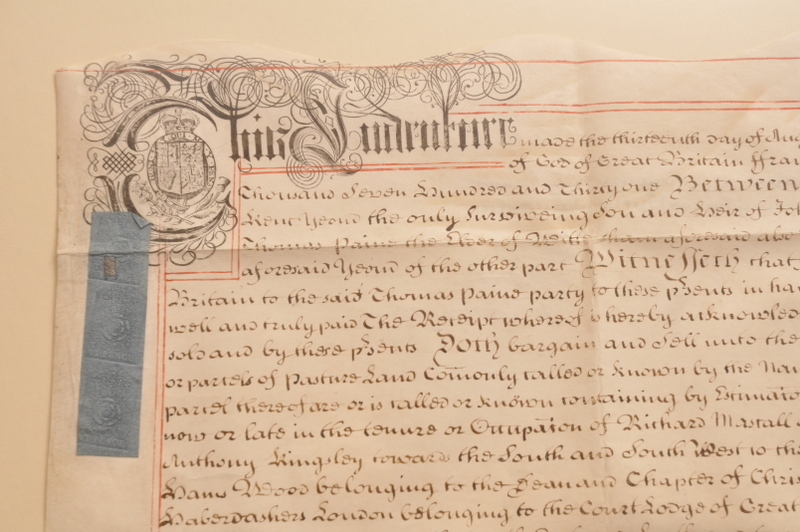 This Indenture made the thirteenth day of Aug
of God of Great Britain ffran
Thousand Seven Hundred and Thirty one Between
Kent Yeom̄ the only Surviveing Son and Heir of Joh
Thomas Paine the Elder of aforesaid
aforesaid Yeom̄ of the other part Witnesseth that
Britain to the said Thomas Paine party to these p̄sents in ha
well and truly paid The Receipt whereof is hereby acknowled
sold and by these p̄sents Doth bargain and sell unto the
or parcels of Pasture Land Com̄only called or known by the Nam
parcel thereof are or is called or known containing by Estimac̄on
now or late in the tenure or Occupac̄on of Richard Mascall
Anthony Kingsley toward the South and South West to the
Hams Wood belonging to the Dean and Chapter of Chris
Haberdashers London belonging to the Court Lodge of Great